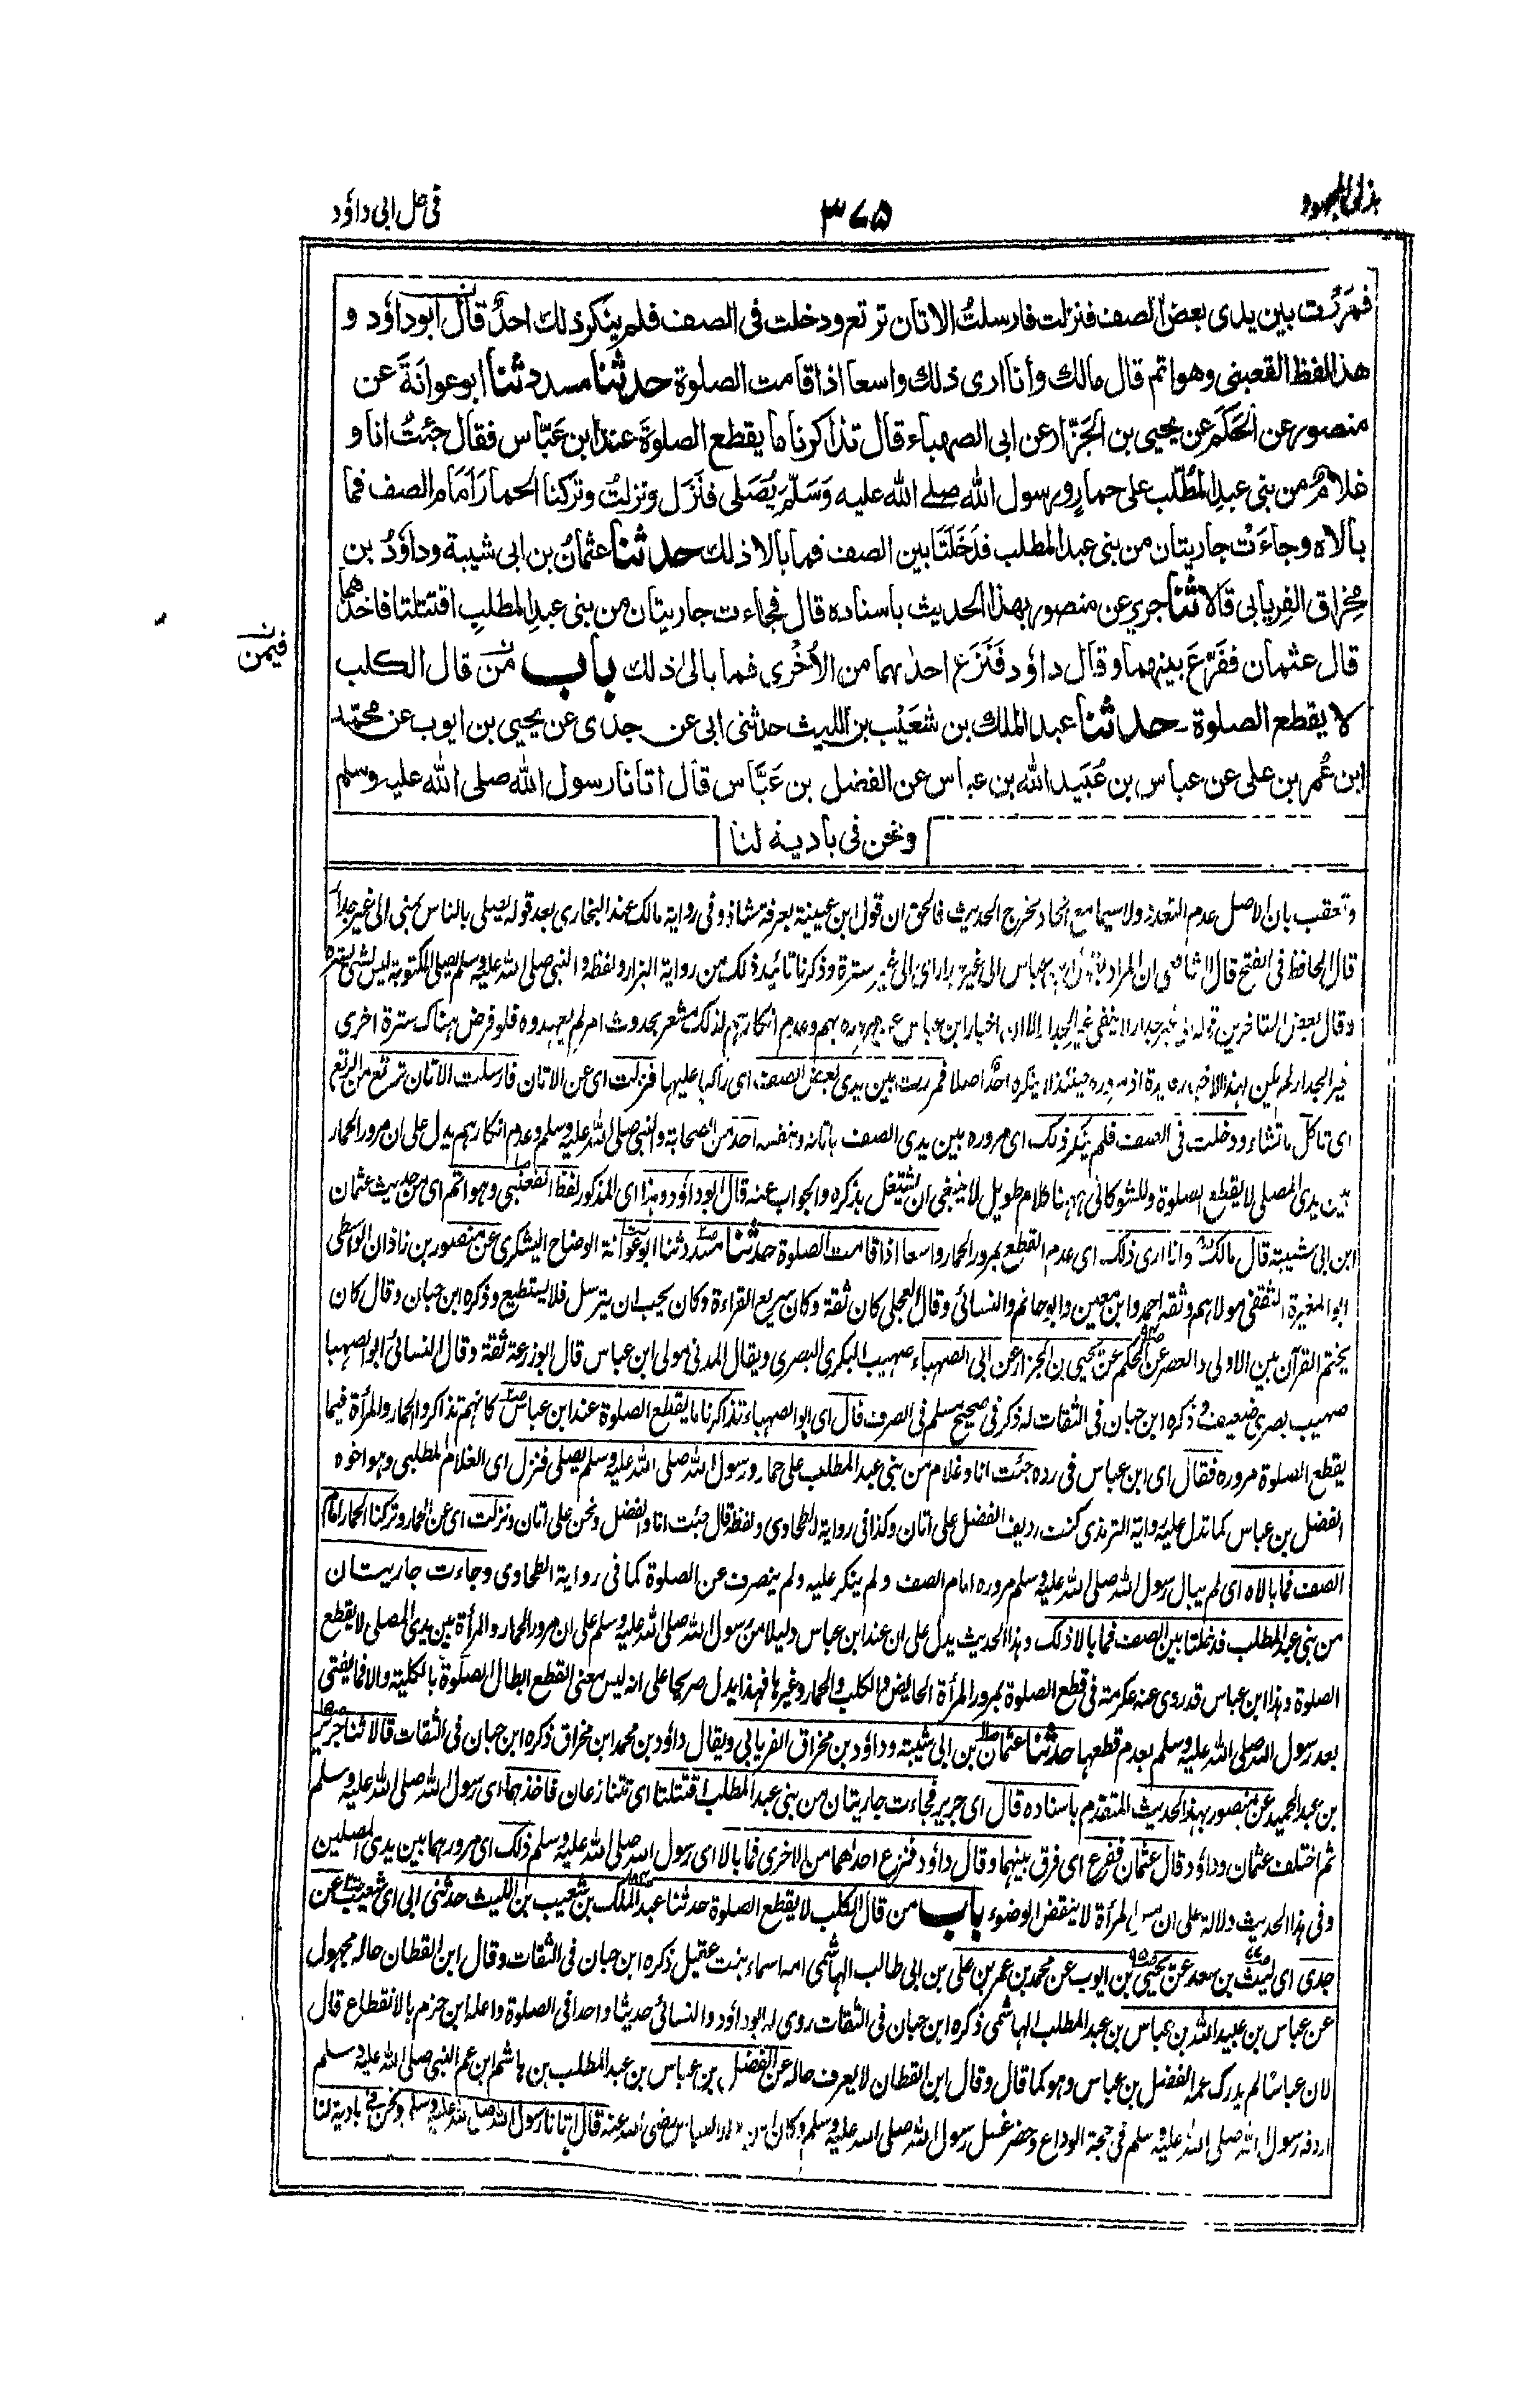 بذل المجهود
٣٧٥
فى حل ابى داؤد
فمررت بين يدى بعض الصف فنزلت فارسلتُ الاتان ترتع ودخلت فى الصف فلم ينكر ذلك احدٌ قال ابو داؤد و
هذا لفظ القعنبى وهو اتم قال مالك وأنا ارى ذلك واسعا اذا قامت الصلوة حدثنا مسدد ثنا ابو عوانَةَ عن
منصور عن الحَكَم عن يحيى بن الجَزّار عن ابى الصهباء قال تذاكرنا ما يقطع الصلوةَ عند ابن عَبّاس فقال جئتُ انا و
غلامٌ من بنى عبد المُطّلب على حمارٍ ورسول الله صلے الله عليه وَسَلّمَ يُصَلى فنَزَل ونزلتُ وتركنا الحمارَ اَمَام الصف فما
بالاه وجاءَتْ جاريتان من بنى عبد المطلب فدَخَلَتَا بين الصف فما بالا ذلك حدثنا عثمانُ بن ابى شيبة وداؤدُ بن
مِخراق الفِريابى قالا ثنا جرير عن منصور بهذا الحديث باسناده قال فجاءت جاريتان من بنى عبدِ المطلبِ اقتتلتا فاخذهما
فيمن
قال عثمان ففَرّعَ بينهما وقال داؤد فَنَزَعَ احدٰهما من الاُخْرى فما بالىٰ ذلك باب من قال الكلب
لا يقطع الصلوة - حدثنا عبد الملك بن شعَيْب بن الليث حدثنى ابى عن جدى عن يحيى بن ايوب عن محمّد
ابن عُمر بن على عن عباس بن عُبَيد الله بن عباس عن الفضل بن عَبَّاس قال اتانا رسول الله صلى الله عليه وسلم
ونحن فى بادية لنا
وتعقب بان الاصل عدم التعدد ولا سيما مع اتحاد مخرج الحديث فالحق ان قول ابن عيينة بعرفة شاذ وفى رواية مالك عند البخارى بعد قوله يصلى بالناس بمنى الى غير جدار
قال الحافظ فى الفتح قال الشافعى ان المراد بقول ابن عباس الى غير جدار اى الى غير سترة وذكرنا تائيد ذلك من رواية البزار ولفظه والنبى صلى الله عليه وسلم يصلى المكتوبة ليس لشئ يستره
وقال بعض المتاخرين قوله الى غير جدار لا ينفى غير الجدار الا ان اخبار ابن عباس عن مروره بهم وعدم انكارهم لذلك مشعر بحدوث امر لم يعهدوه فلو فرض هناك سترة اخرى
غير الجدار لم يكن لهذا الاخبار فائدة اذ مروره حينئذ لا ينكره احدٌ اصلا فمررت بين يدى بعض الصف اى راكبا عليها فنزلت اى عن الاتان فارسلت الاتان ترتع من الرتع
اى تاكل ما تشاء ودخلت فى الصف فلم ينكر ذلك اى مروره بين يدى الصف باتانه وبنفسه احد من الصحابة والنبى صلى الله عليه وسلم وعدم انكارهم يدل على ان مرور الحمار
بين يدى المصلى لا يقطع الصلوة وللشوكانى ههنا كلام طويل لا ينبغى ان يشتغل بذكره والجواب عنه قال ابو داؤد وهذا اى المذكور لفظ القعنبى وهو اتم اى من حديث عثمان
ابن ابى شيبة قال مالك وانا ارى ذلك اى عدم القطع بمرور الحمار واسعا اذا قامت الصلوة حدثنا مسدد ثنا ابو عوانة الوضاح اليشكرى عن منصور بن زاذان الواسطى
ابو المغيرة الثقفى مولاهم وثقه احمد وابن معين وابو حاتم والنسائى وقال العجلى كان ثقة وكان سريع القراءة وكان يحب ان يترسل فلا يستطيع وذكره ابن حبان وقال كان
يختم القرآن بين الاولى والعصر عن الحكم عن يحيى بن الجزار عن ابى الصهباء صهيب البكرى البصرى ويقال المدنى مولى ابن عباس قال ابو زرعة ثقة وقال النسائى ابو الصهبا
صهيب بصرى ضعيف وذكره ابن حبان فى الثقات له ذكر فى صحيح مسلم فى الصرف قال اى ابو الصهباء تذاكرنا ما يقطع الصلوة عند ابن عباس كانهم تذاكروا الحمار والمرأة فيما
يقطع الصلوة مروره فقال اى ابن عباس فى رده جئت انا وغلام من بنى عبد المطلب على حمار ورسول الله صلى الله عليه وسلم يصلى فنزل اى الغلام المطلبى وهو اخوه
الفضل بن عباس كما تدل عليه رواية الترمذى كنت رديف الفضل على اتان وكذا فى رواية الطحاوى ولفظه قال جئت انا والفضل ونحن على اتان ونزلت اى عن الحمار وتركنا الحمار امام
الصف فما بالاه اى لم يبال رسول الله صلى الله عليه وسلم مروره امام الصف ولم ينكر عليه ولم ينصرف عن الصلوة كما فى رواية الطحاوى وجاءت جاريتان
من بنى عبد المطلب فدخلتا بين الصف فما بالا ذلك وهذا الحديث يدل على ان عند ابن عباس دليلا من رسول الله صلى الله عليه وسلم على ان مرور الحمار والمرأة بين يدى المصلى لا يقطع
الصلوة وهذا ابن عباس قد روى عنه عكرمة فى قطع الصلوة بمرور المرأة الحايض والكلب والحمار وغيرها فهذا يدل صريحا على انه ليس معنى القطع ابطال الصلوة بالكلية والا فما يفتى
بعد رسول الله صلى الله عليه وسلم بعدم قطعها حدثنا عثمان بن ابى شيبة وداؤد بن مخراق الفريابى ويقال داؤد بن محمد ابن مخراق ذكره ابن حبان فى الثقات قالا ثنا جرير
بن عبد الحميد عن منصور بهذا الحديث المتقدم باسناده قال اى جرير فجاءت جاريتان من بنى عبد المطلب اقتتلتا اى تتنازعان فاخذهما اى رسول الله صلى الله عليه وسلم
ثم اختلف عثمان وداؤد قال عثمان ففرع اى فرق بينهما وقال داؤد فنزع احداهما من الاخرى فما بالا اى رسول الله صلى الله عليه وسلم ذلك اى مرورهما بين يدى المصلين
وفى هذا الحديث دلالة على ان مس المرأة لا ينقض الوضوء باب من قال الكلب لا يقطع الصلوة حدثنا عبد الملك بن شعيب بن الليث حدثنى ابى اى شعيب عن
جدى اى ليث بن سعد عن يحيى بن ايوب عن محمد بن عمر بن على بن ابى طالب الهاشمى امه اسماء بنت عقيل ذكره ابن حبان فى الثقات وقال ابن القطان حاله مجهول
عن عباس بن عبيد الله بن عباس بن عبد المطلب الهاشمى ذكره ابن حبان فى الثقات روى له ابو داؤد والنسائى حديثا واحدا فى الصلوة واعله ابن حزم بالانقطاع قال
لان عباسًا لم يدرك عمه الفضل بن عباس وهو كما قال وقال ابن القطان لا يعرف حاله عن الفضل بن عباس بن عبد المطلب بن هاشم ابن عم النبى صلى الله عليه وسلم
اردفه رسول الله صلى الله عليه وسلم فى حجة الوداع وحضر غسل رسول الله صلى الله عليه وسلم وكان رضى الله عنه قال اتانا رسول الله صلى الله عليه وسلم ونحن فى بادية لنا